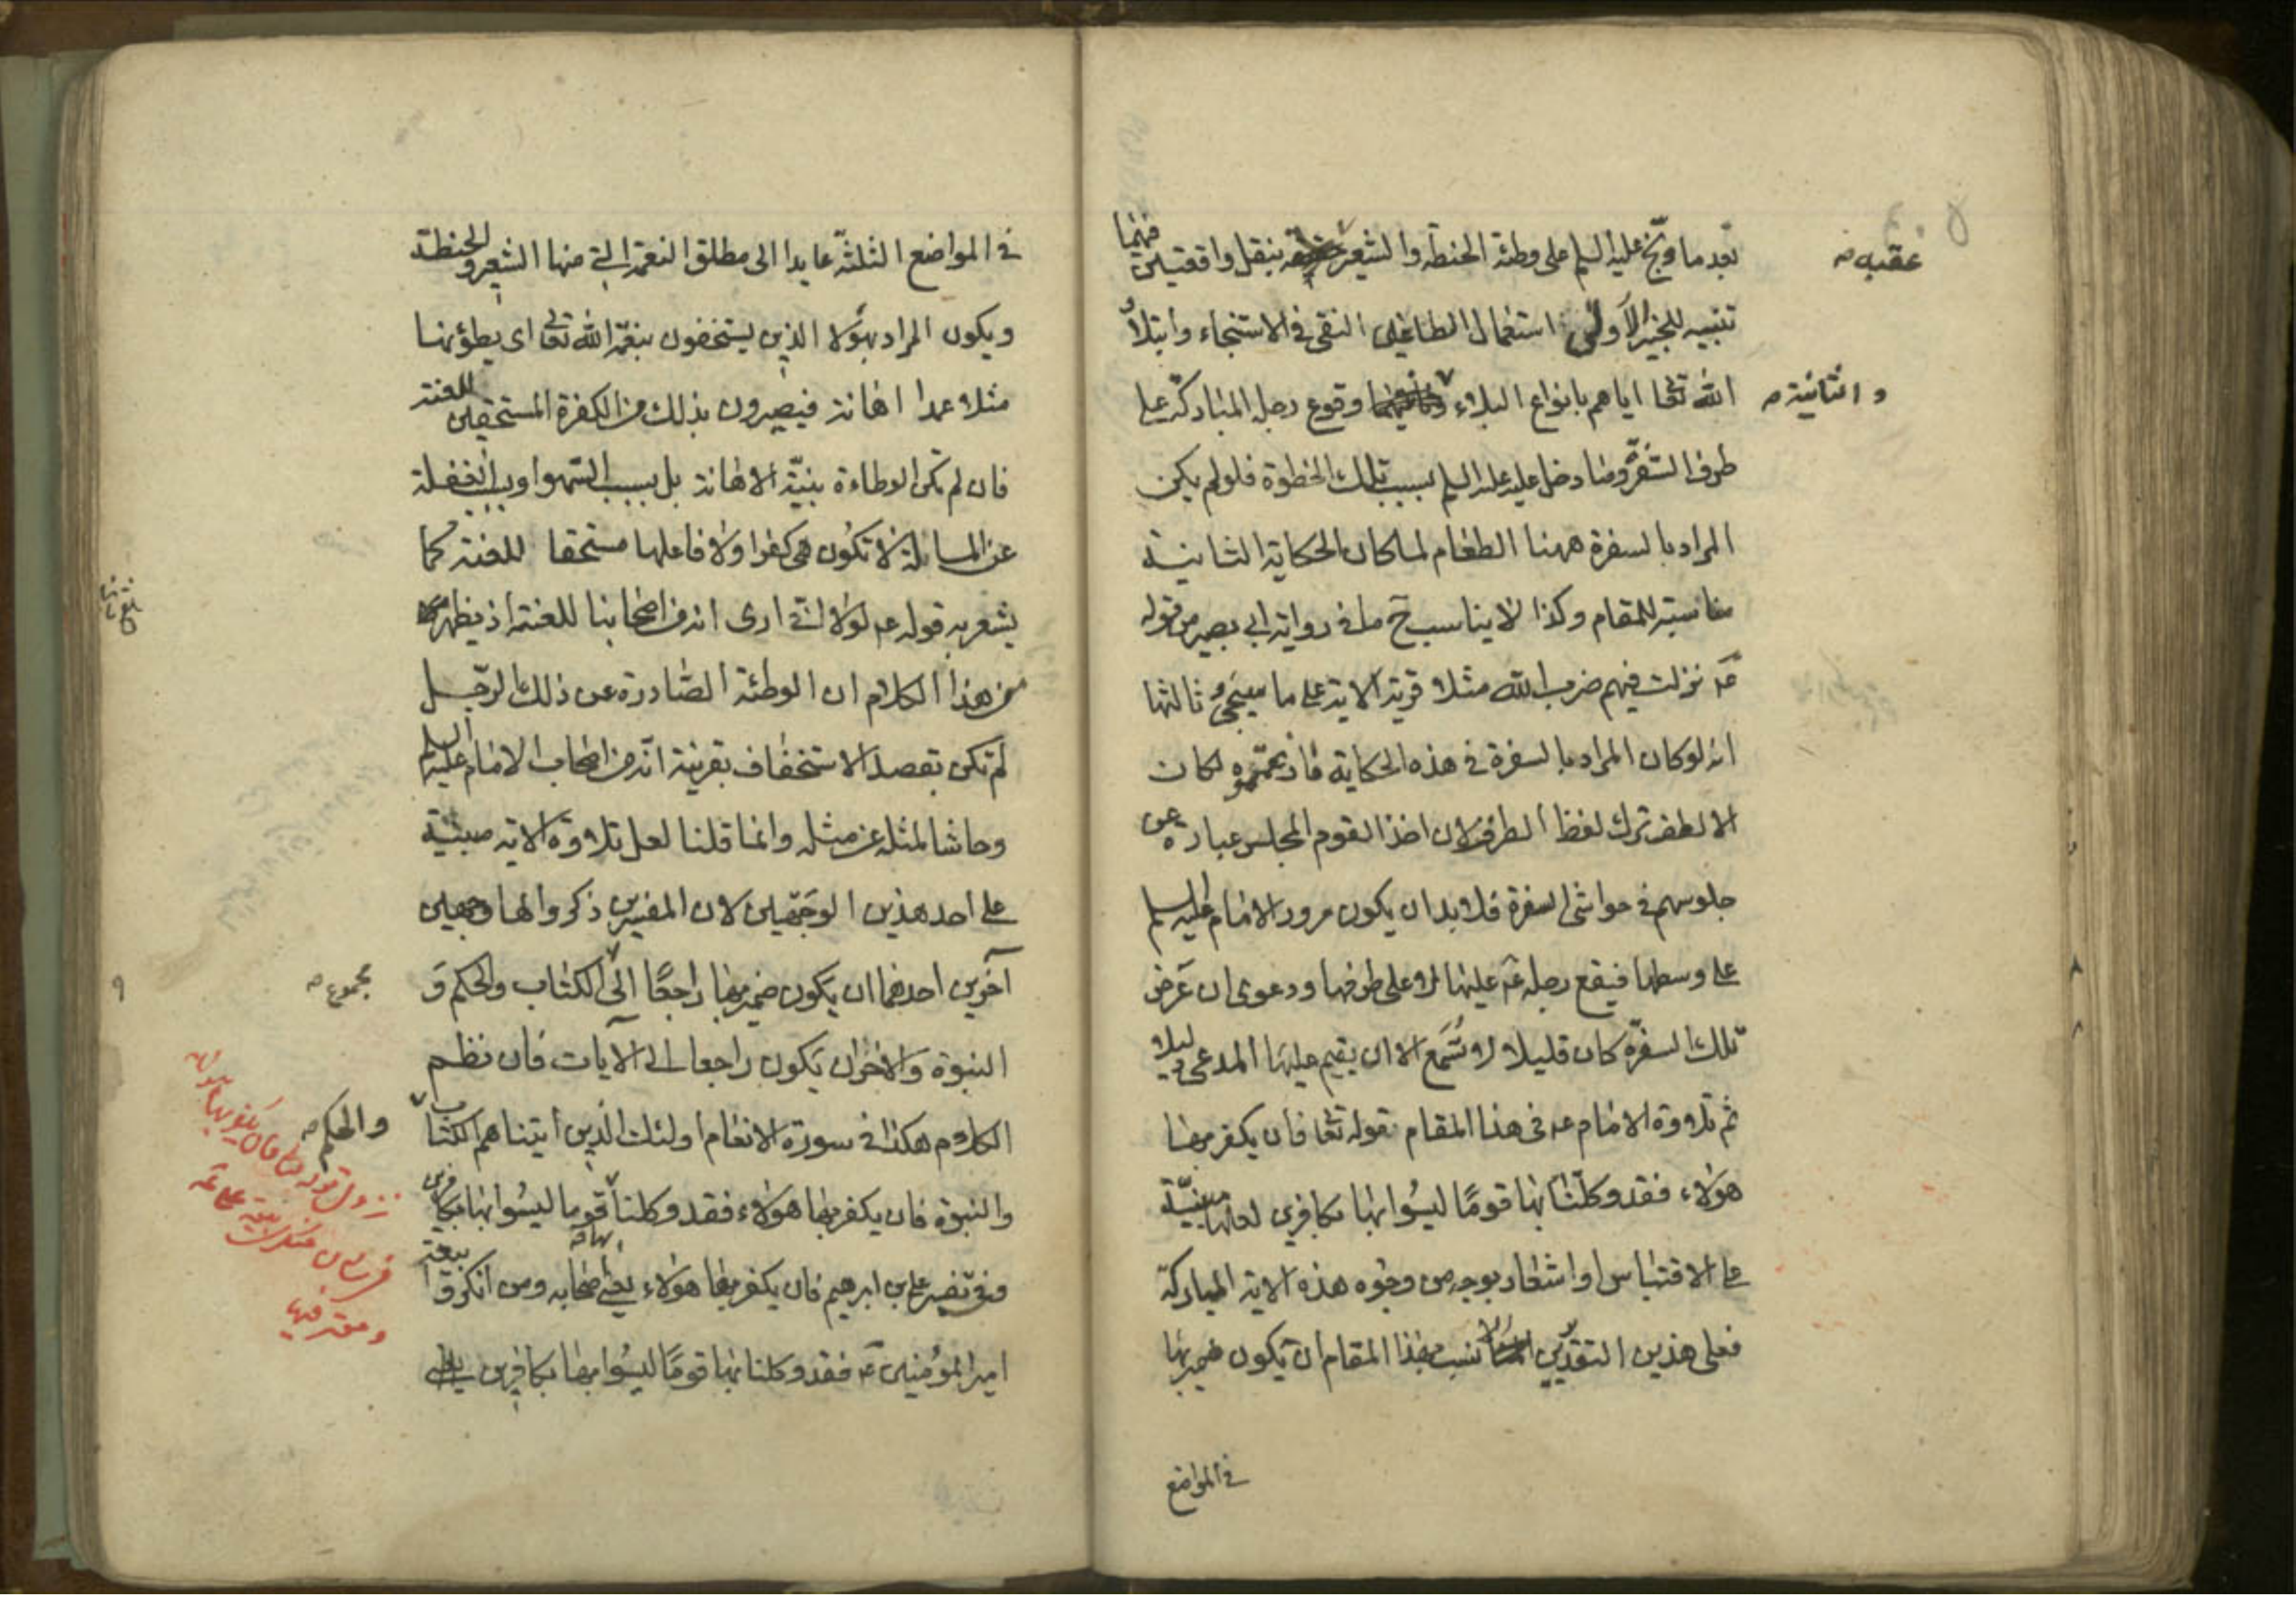 بعد ما وبّخ عليه السلم على وطئة الحنطة والشعير عقبه بنقل واقعتين فهنما
تنبيه للخير الأولى استعمال الطاغين النقى فى الاستنجاء وابتلاء
الله تعا اياهم بانواع البلاء والثانية وقوع رجله المباركة على
طرف السفرة وما دخل عليه عليه السلم بسبب تلك الخطوة فلو لم يكن
المراد بالسفرة ههنا الطعام لما كان الحكاية الثانية
مناسبة للمقام وكذا لا يناسب ح ما فى رواية ابى بصير من قوله
عم نزلت فيهم ضرب الله مثلا قرية الاية على ما سيجئ ثالثها
انه لو كان المراد بالسفرة فى هذه الحكاية ما زعمتموه لكان
الالطف ترك لفظ الطرف لان اخذ القوم المجلس عبارة عن
جلوسهم فى حواشى السفرة فلا بد ان يكون مرور الامام عليه السلم
على وسطها فيقع رجله عم عليها لا على طرفها ودعوى ان عرض
تلك السفرة كان قليلا لا تسمع الا ان يقيم عليها المدعى دليلا
ثم تلاوة الامام عم فى هذا المقام قوله تعا فان يكفر بها
هؤلاء فقد وكلنا بها قومًا ليسوا بها بكافرين لعلها مبنيّة
على الاقتباس او اشعار بوجه من وجوه هذه الاية المباركة
فعلى هذين التقديرين الانسب بهذا المقام ان يكون ضمير بها
فى المواضع
عقبه صه
والثانية صه
فى المواضع الثلثة عايدا الى مطلق النعمة التى منها الشعير والحنطة
ويكون المراد بهؤلا الذين يستخفون بنعمة الله تعا اى يطؤنها
مثلا عمدا اهانة فيصيرون بذلك من الكفرة المستحقين للعنة
فان لم تكن الوطاءة بنيّة الاهانة بل بسبب السّهو او بسبب الغفلة
عن المسالة لا تكون هى كفرا ولا فاعلها مستحقا للعنة كما
يشعر به قوله عم لولا انى ارى انه من اصحابنا للعنته اذ يظهر
من هذا الكلام ان الوطئة الصّادرة عن ذلك الرّجل
لم تكن بقصد الاستخفاف بقرينة انّه من اصحاب الامام عليه السلم
وحاشا لمثله عن مثله وانما قلنا لعل تلاوة الاية مبنيّة
على احد هذين الوجهين لان المفسرين ذكروا لها وجهين
آخرين احدهما ان يكون ضمير بها راجعًا الى الكتاب والحكم و
النبوة والاخر ان يكون راجعا الى الآيات فان نظم
الكلام هكذا فى سورة الانعام اولئك الذين اتيناهم الكتاب
والنبوة فان يكفر بها هؤلاء فقد وكلنا بها قوما ليسوا بها بكافرين
وفى تفسير على بن ابرهيم فان يكفر بها هؤلاء يعنى اصحابه ومن انكروا بيعة
امير المؤمنين عم فقد وكلنا بها قومًا ليسوا بها بكافرين
مجموع صه
والحكم صه
نزول قوله تعا فان يكفر بها هؤلاء